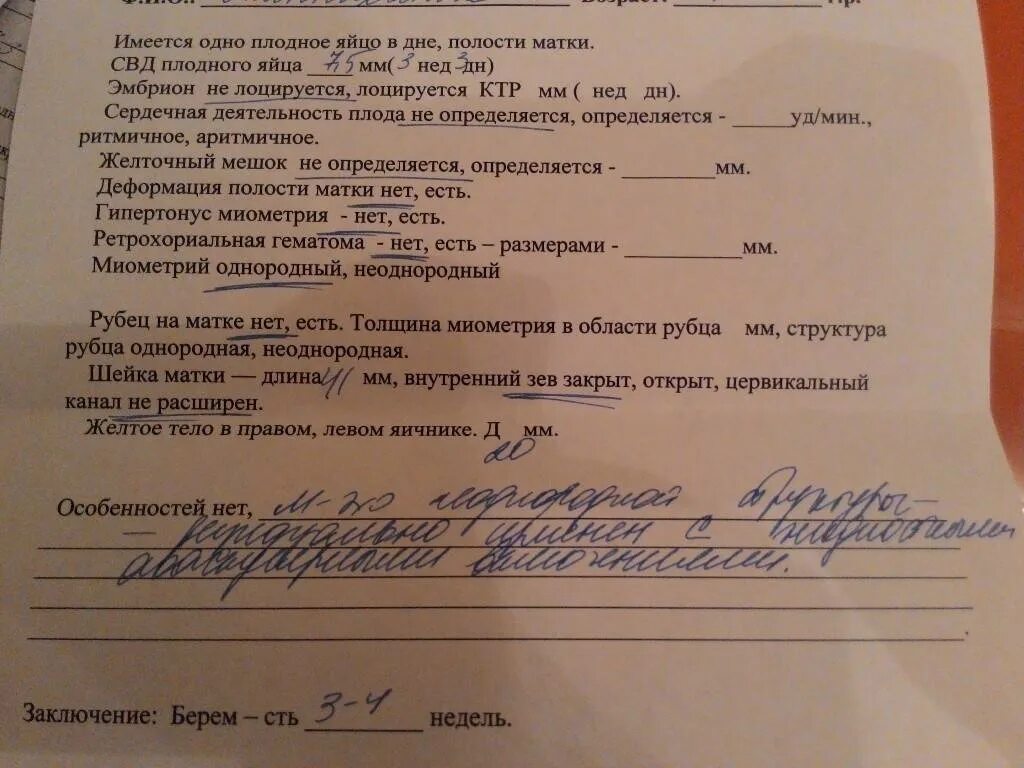 Ф.И.О.: Возраст:
Имеется одно плодное яйцо в дне, полости матки.
СВД плодного яйца 7,5 мм( 3 нед 3 дн)
Эмбрион не лоцируется, лоцируется КТР мм ( нед дн).
Сердечная деятельность плода не определяется, определяется - уд/мин.,
ритмичное, аритмичное.
Желточный мешок не определяется, определяется - мм.
Деформация полости матки нет, есть.
Гипертонус миометрия - нет, есть.
Ретрохориальная гематома - нет, есть – размерами - мм.
Миометрий однородный, неоднородный
Рубец на матке нет, есть. Толщина миометрия в области рубца мм, структура
рубца однородная, неоднородная.
Шейка матки — длина 41 мм, внутренний зев закрыт, открыт, цервикальный
канал не расширен.
Желтое тело в правом, левом яичнике. Д мм.
20
Особенностей нет, М-эхо неоднородной структуры –
– децидуально изменен с
аваскулярными включениями.
Заключение: Берем – сть 3-4 недель.